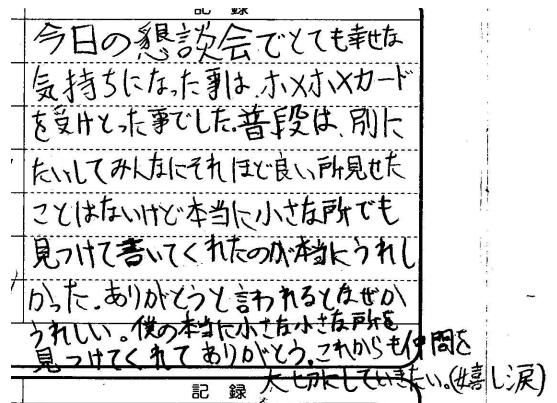 記 録
今日の懇談会でとても幸せな
気持ちになった事は、ホメホメカード
を受けとった事でした。普段は、別に
たいしてみんなにそれほど良い所見せた
ことはないけど本当に小さな所でも
見つけて書いてくれたのが本当にうれし
かった。ありがとうと言われるとなぜか
うれしい。僕の本当に小さな小さな所を
見つけてくれてありがとう。これからも仲間を
大切にしていきたい。(嬉し涙)
記 録